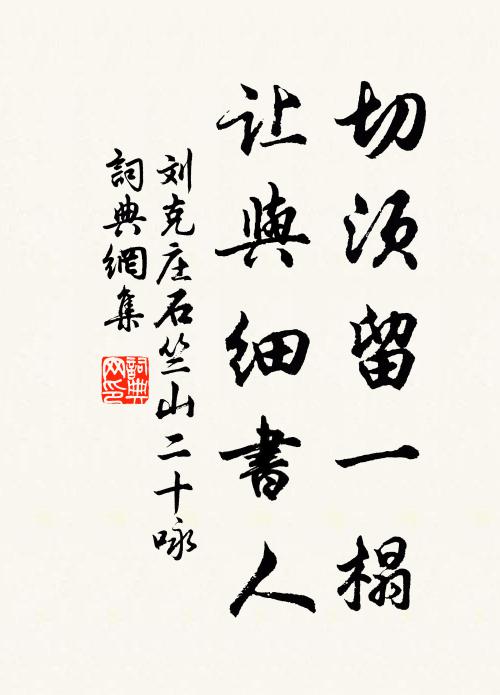 切须留一榻
让與细書人
刘克庄石竺山二十咏
詞典網集
詞典
网印